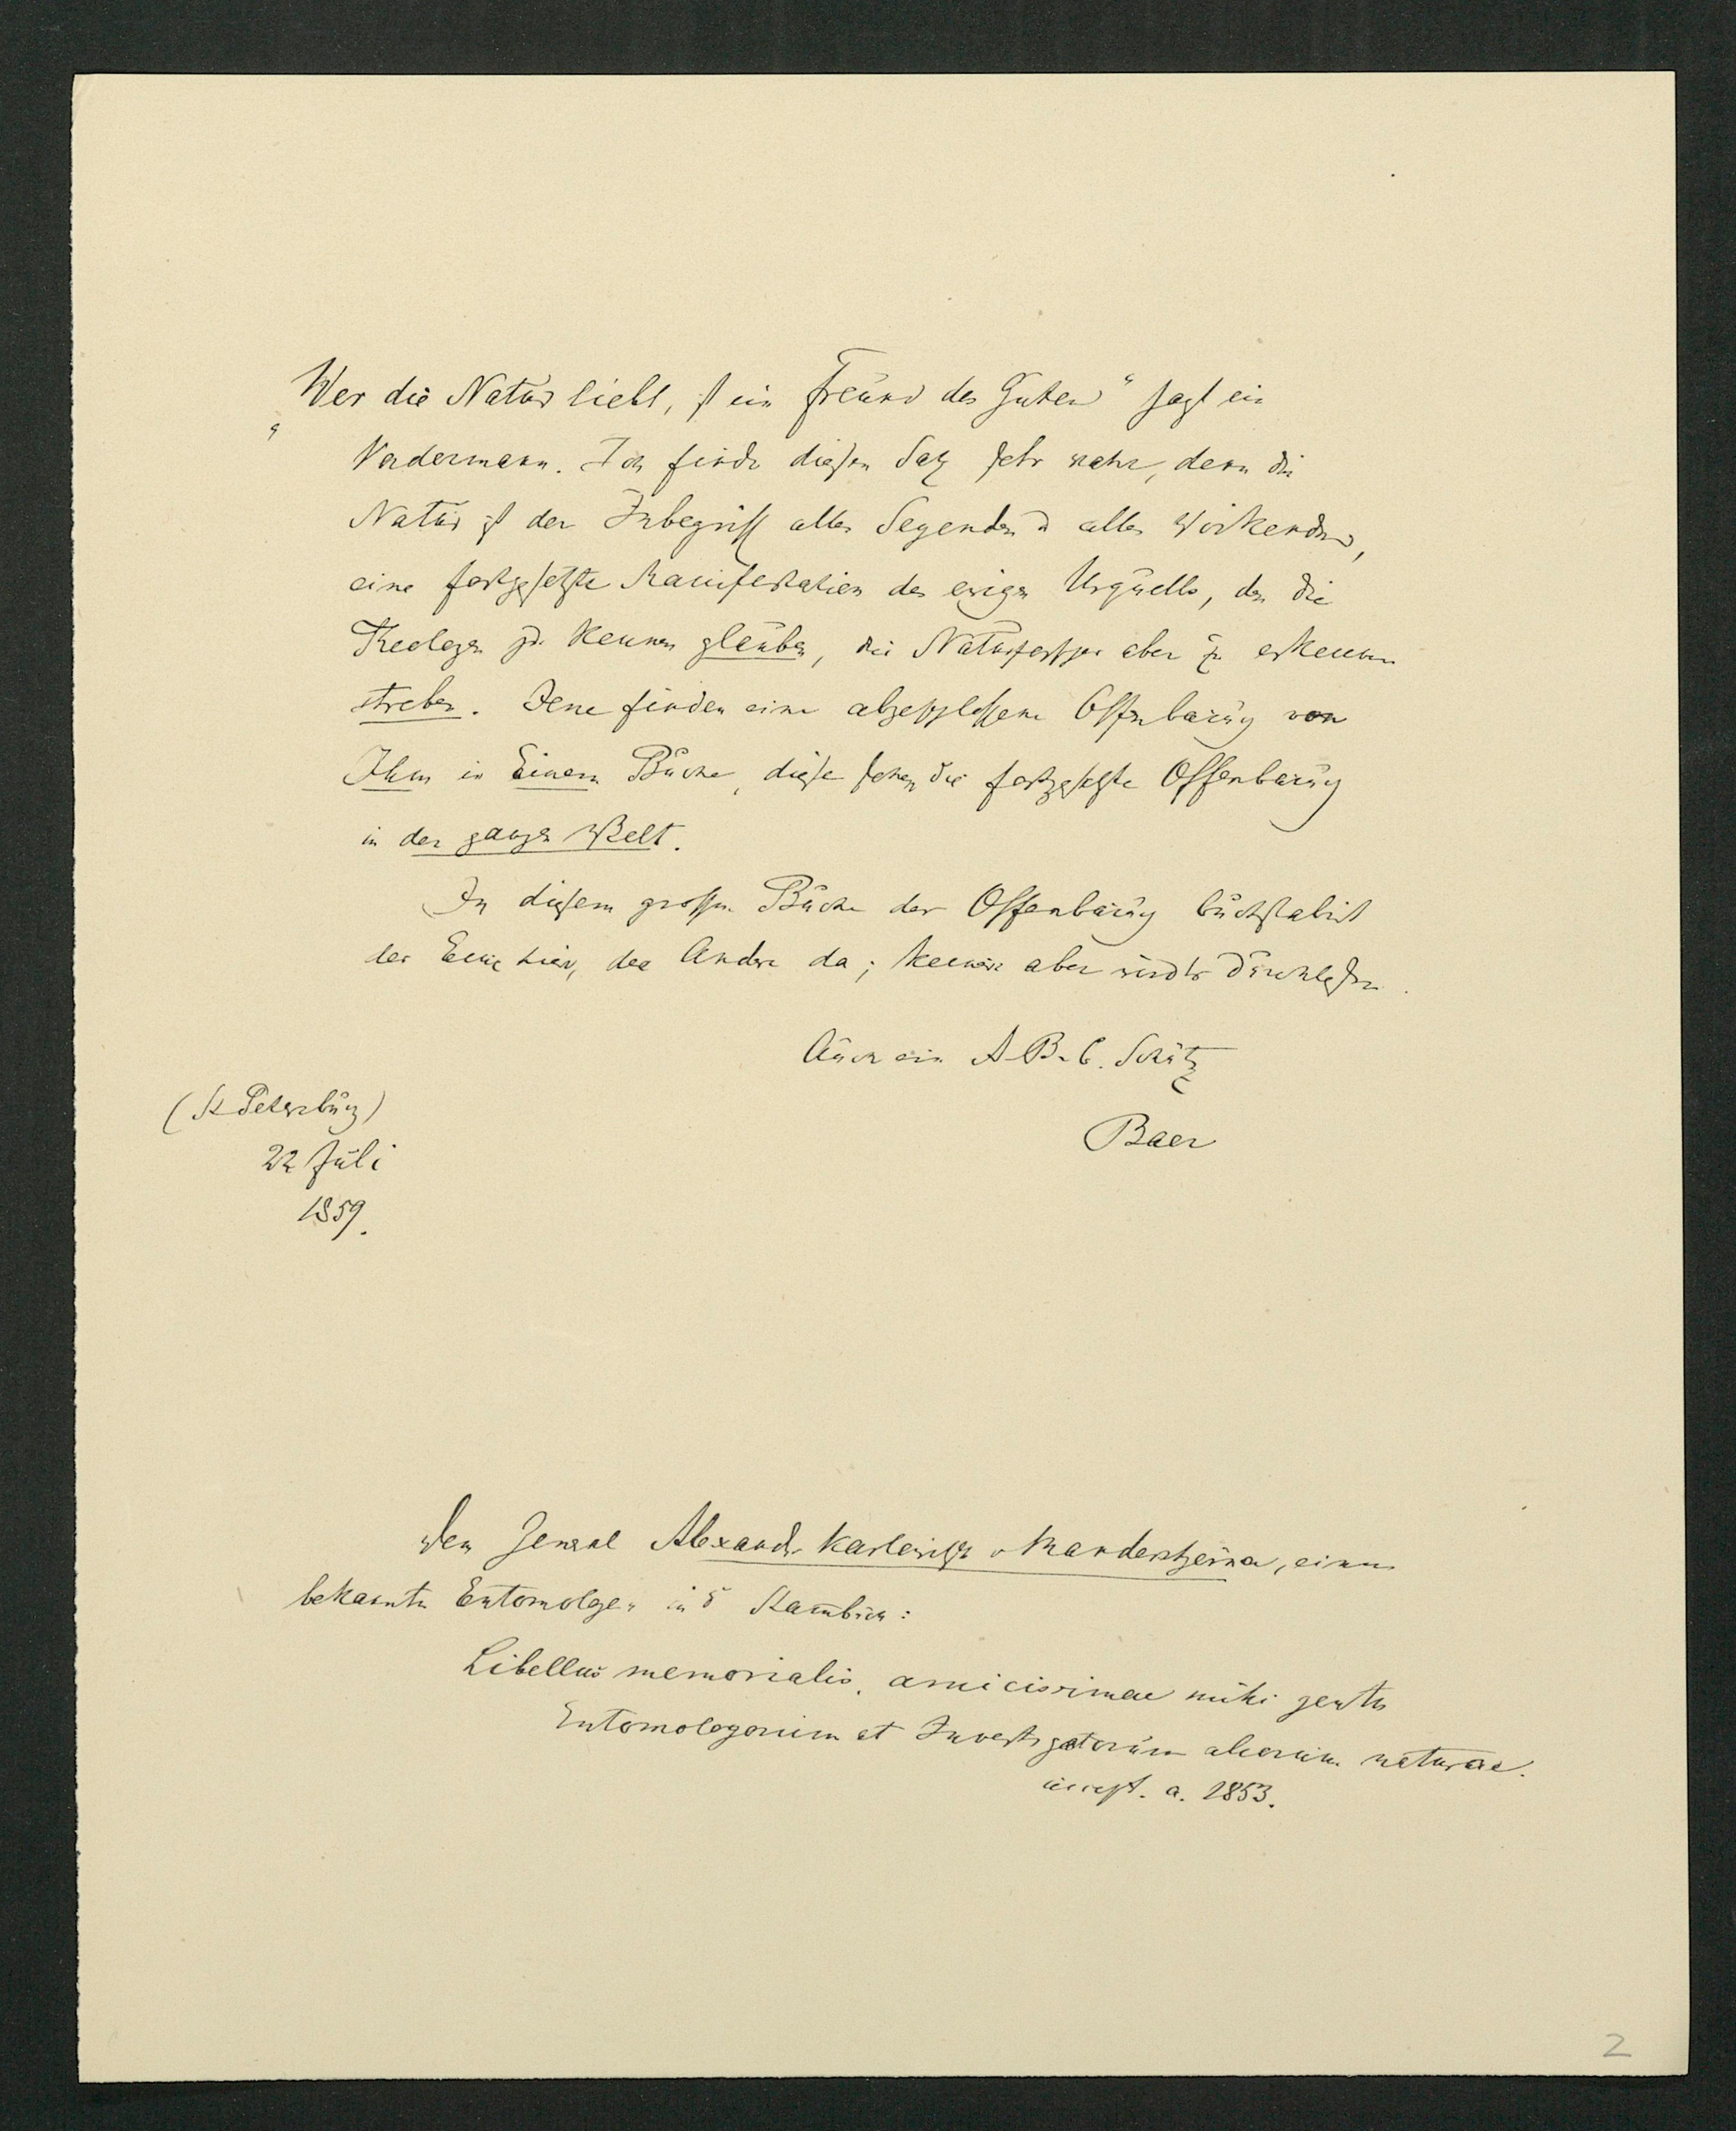 „Wer die Natur liebt, ist ein Freund des Guten“ sagt ein
Vordermann. Ich finde diesen Satz sehr wahr, denn die
Natur ist der Inbegriff alles Seyenden u alles Wirkenden,
eine fortgesetzte Manifestation des ewigen Urquells, den die
Theologen zu kennen glauben, die Naturforscher aber zu erkennen
streben. Jene finden eine abgeschlossene Offenbarung von
Ihm in Einem Buche, diese sehen die fortgesetzte Offenbarung
in der ganzen Welt.
In diesem grossen Buche der Offenbarung buchstabirt
der Eine hier, der Andere da; Keiner aber wird es durchlesen.
Auch ein A-B-C. Schütz
Baer
(St Petersburg)
22 Juli
1859.
Dem General Alexandr Karlowitsch v Manderstjerna, einem
bekannten Entomologen in's Stammbuch:
Libellus memorialis, amicissimae mihi gentis
Entomologorum et Investigatorum aliorum naturae.
incept. a. 1853.
2